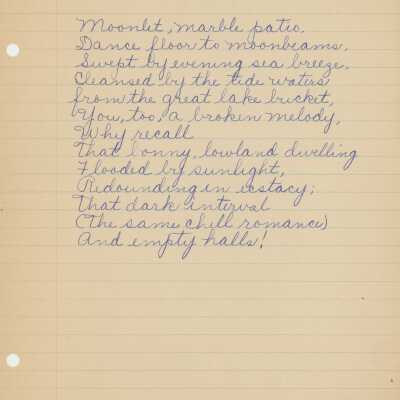 Moonlit, marble patio.
Dance floor to moonbeams,
Swept by evening sea breeze.
Cleansed by the tide waters
from the great lake bucket,
You, too, a broken melody,
Why recall
That bonny, lowland dwelling
Flooded by sunlight,
Redounding in ecstacy;
That dark interval
(The same chill romance)
And empty halls!